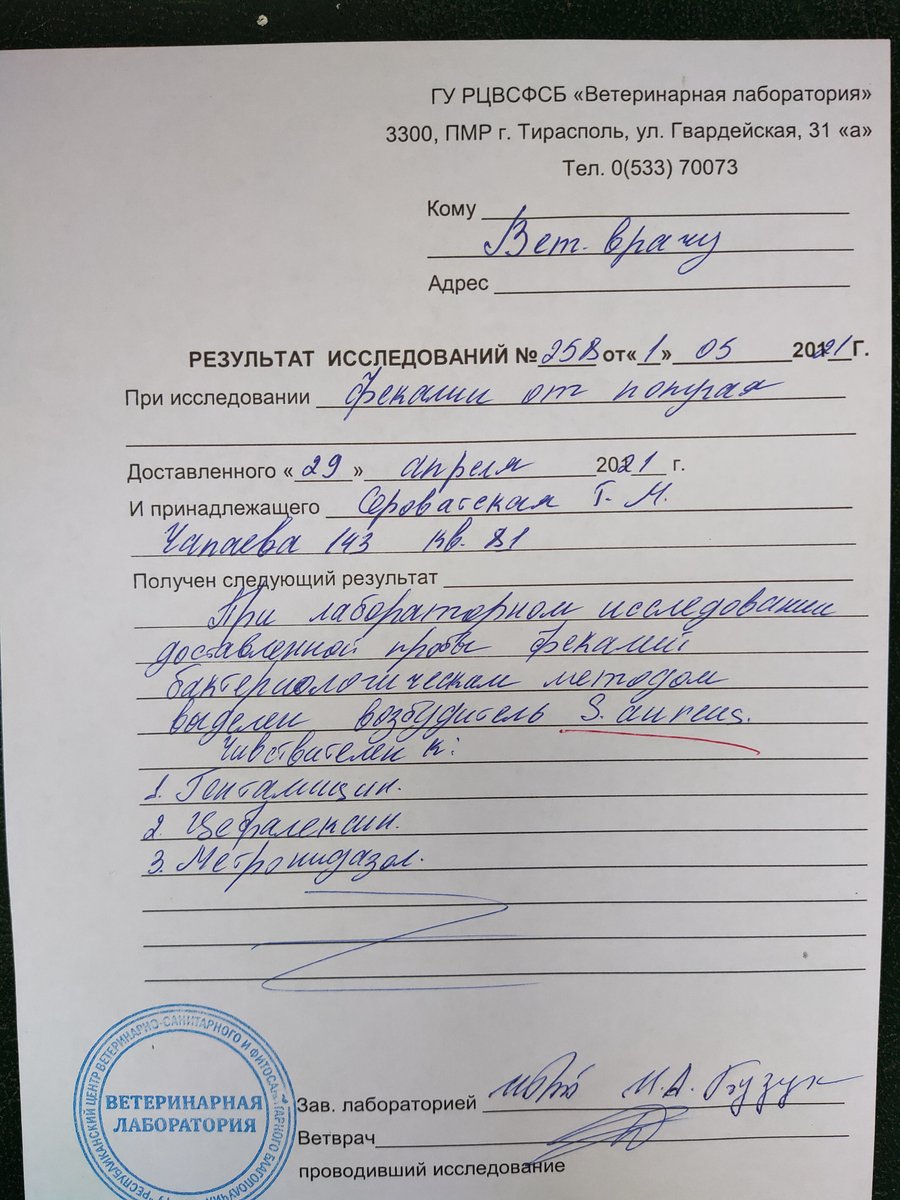 ГУ РЦВСФСБ «Ветеринарная лаборатория»
3300, ПМР г. Тирасполь, ул. Гвардейская, 31 «а»
Тел. 0(533) 70073
Кому
Вет. врачу
Адрес
РЕЗУЛЬТАТ ИССЛЕДОВАНИЙ № 258 от «1» 05 2021 г.
При исследовании фекалии от попугая
Доставленного «29» апреля 2021 г.
И принадлежащего Сероватская Т. М.
Чапаева 143 кв. 81
Получен следующий результат
При лабораторном исследовании
доставленной пробы фекалий
бактериологическом методом
выделен возбудитель S. aureus.
Чувствителен к:
1. Гентамицин.
2. Цефалексин.
3. Метронидазол.
Зав. лабораторией И. А. Бузук
Ветврач
проводивший исследование
ВЕТЕРИНАРНАЯ
ЛАБОРАТОРИЯ
РЕСПУБЛИКАНСКИЙ ЦЕНТР ВЕТЕРИНАРНО-САНИТАРНОГО И ФИТОСАНИТАРНОГО БЛАГОПОЛУЧИЯ